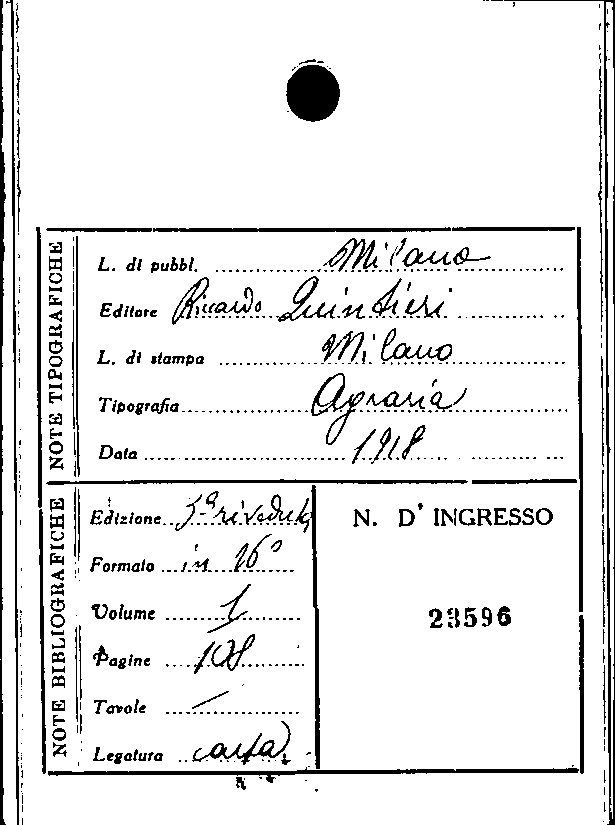 NOTE TIPOGRAFICHE
L. di pubbl. Milano
Editore Riccardo Quintieri
L. di stampa Milano
Tipografia Agraria
Data 1918
NOTE BIBLIOGRAFICHE
Edizione 3ª riveduta
Formato in 16°
Volume 1
Pagine 108
Tavole /
Legatura carta
N. D' INGRESSO
23596